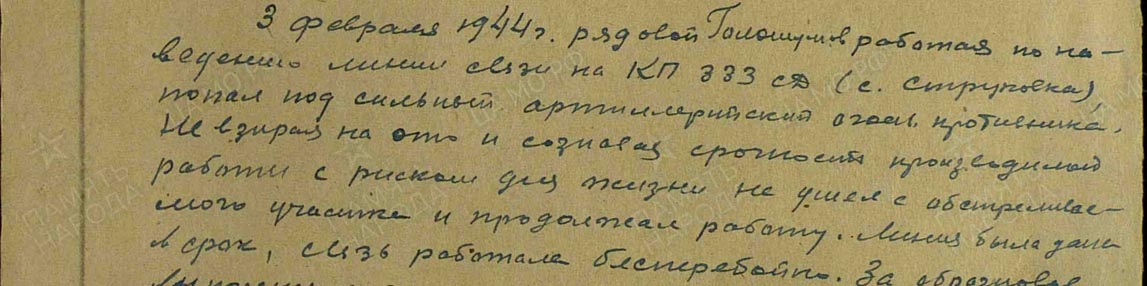 3 февраля 1944 г. рядовой работая по на-
ведению линии связи на КП 333 сд (с. Струковка),
попал под сильный артиллерийский огонь противника.
Не взирая на это и сознавая срочность производимой
работы с риском для жизни не ушел с обстреливае-
мого участка и продолжал работу. Линия была дана
в срок, связь работала бесперебойно. За образцовое